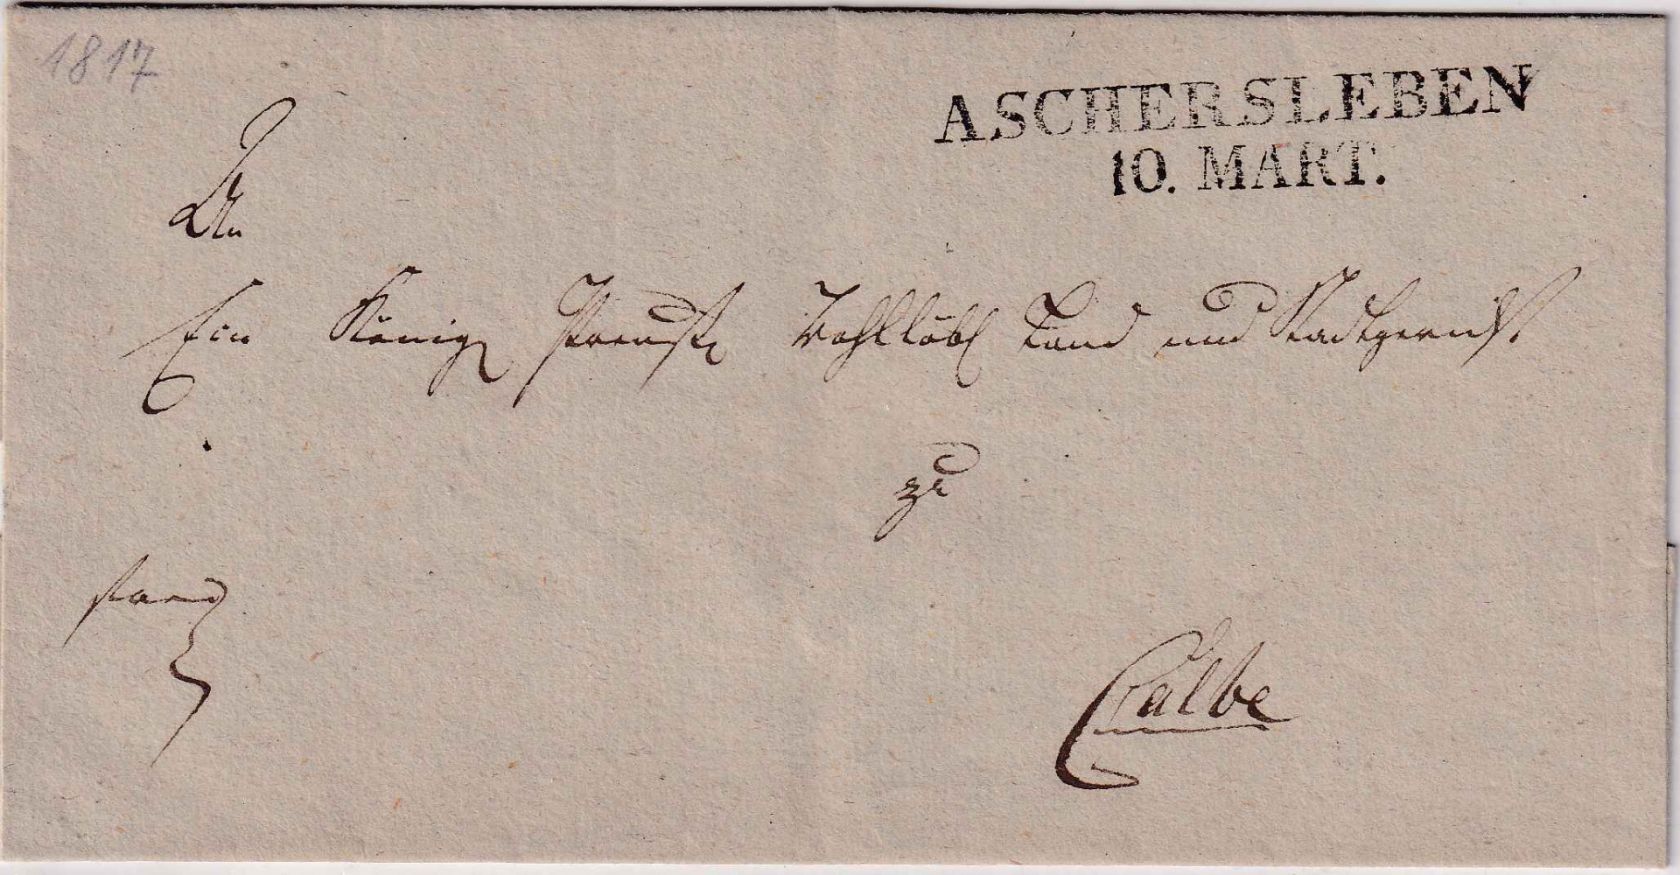 1817
ASCHERSLEBEN
10. MART.
An
Ein Königl Preuß Wohllöbl Land und Stadtgericht
zu
Calbe